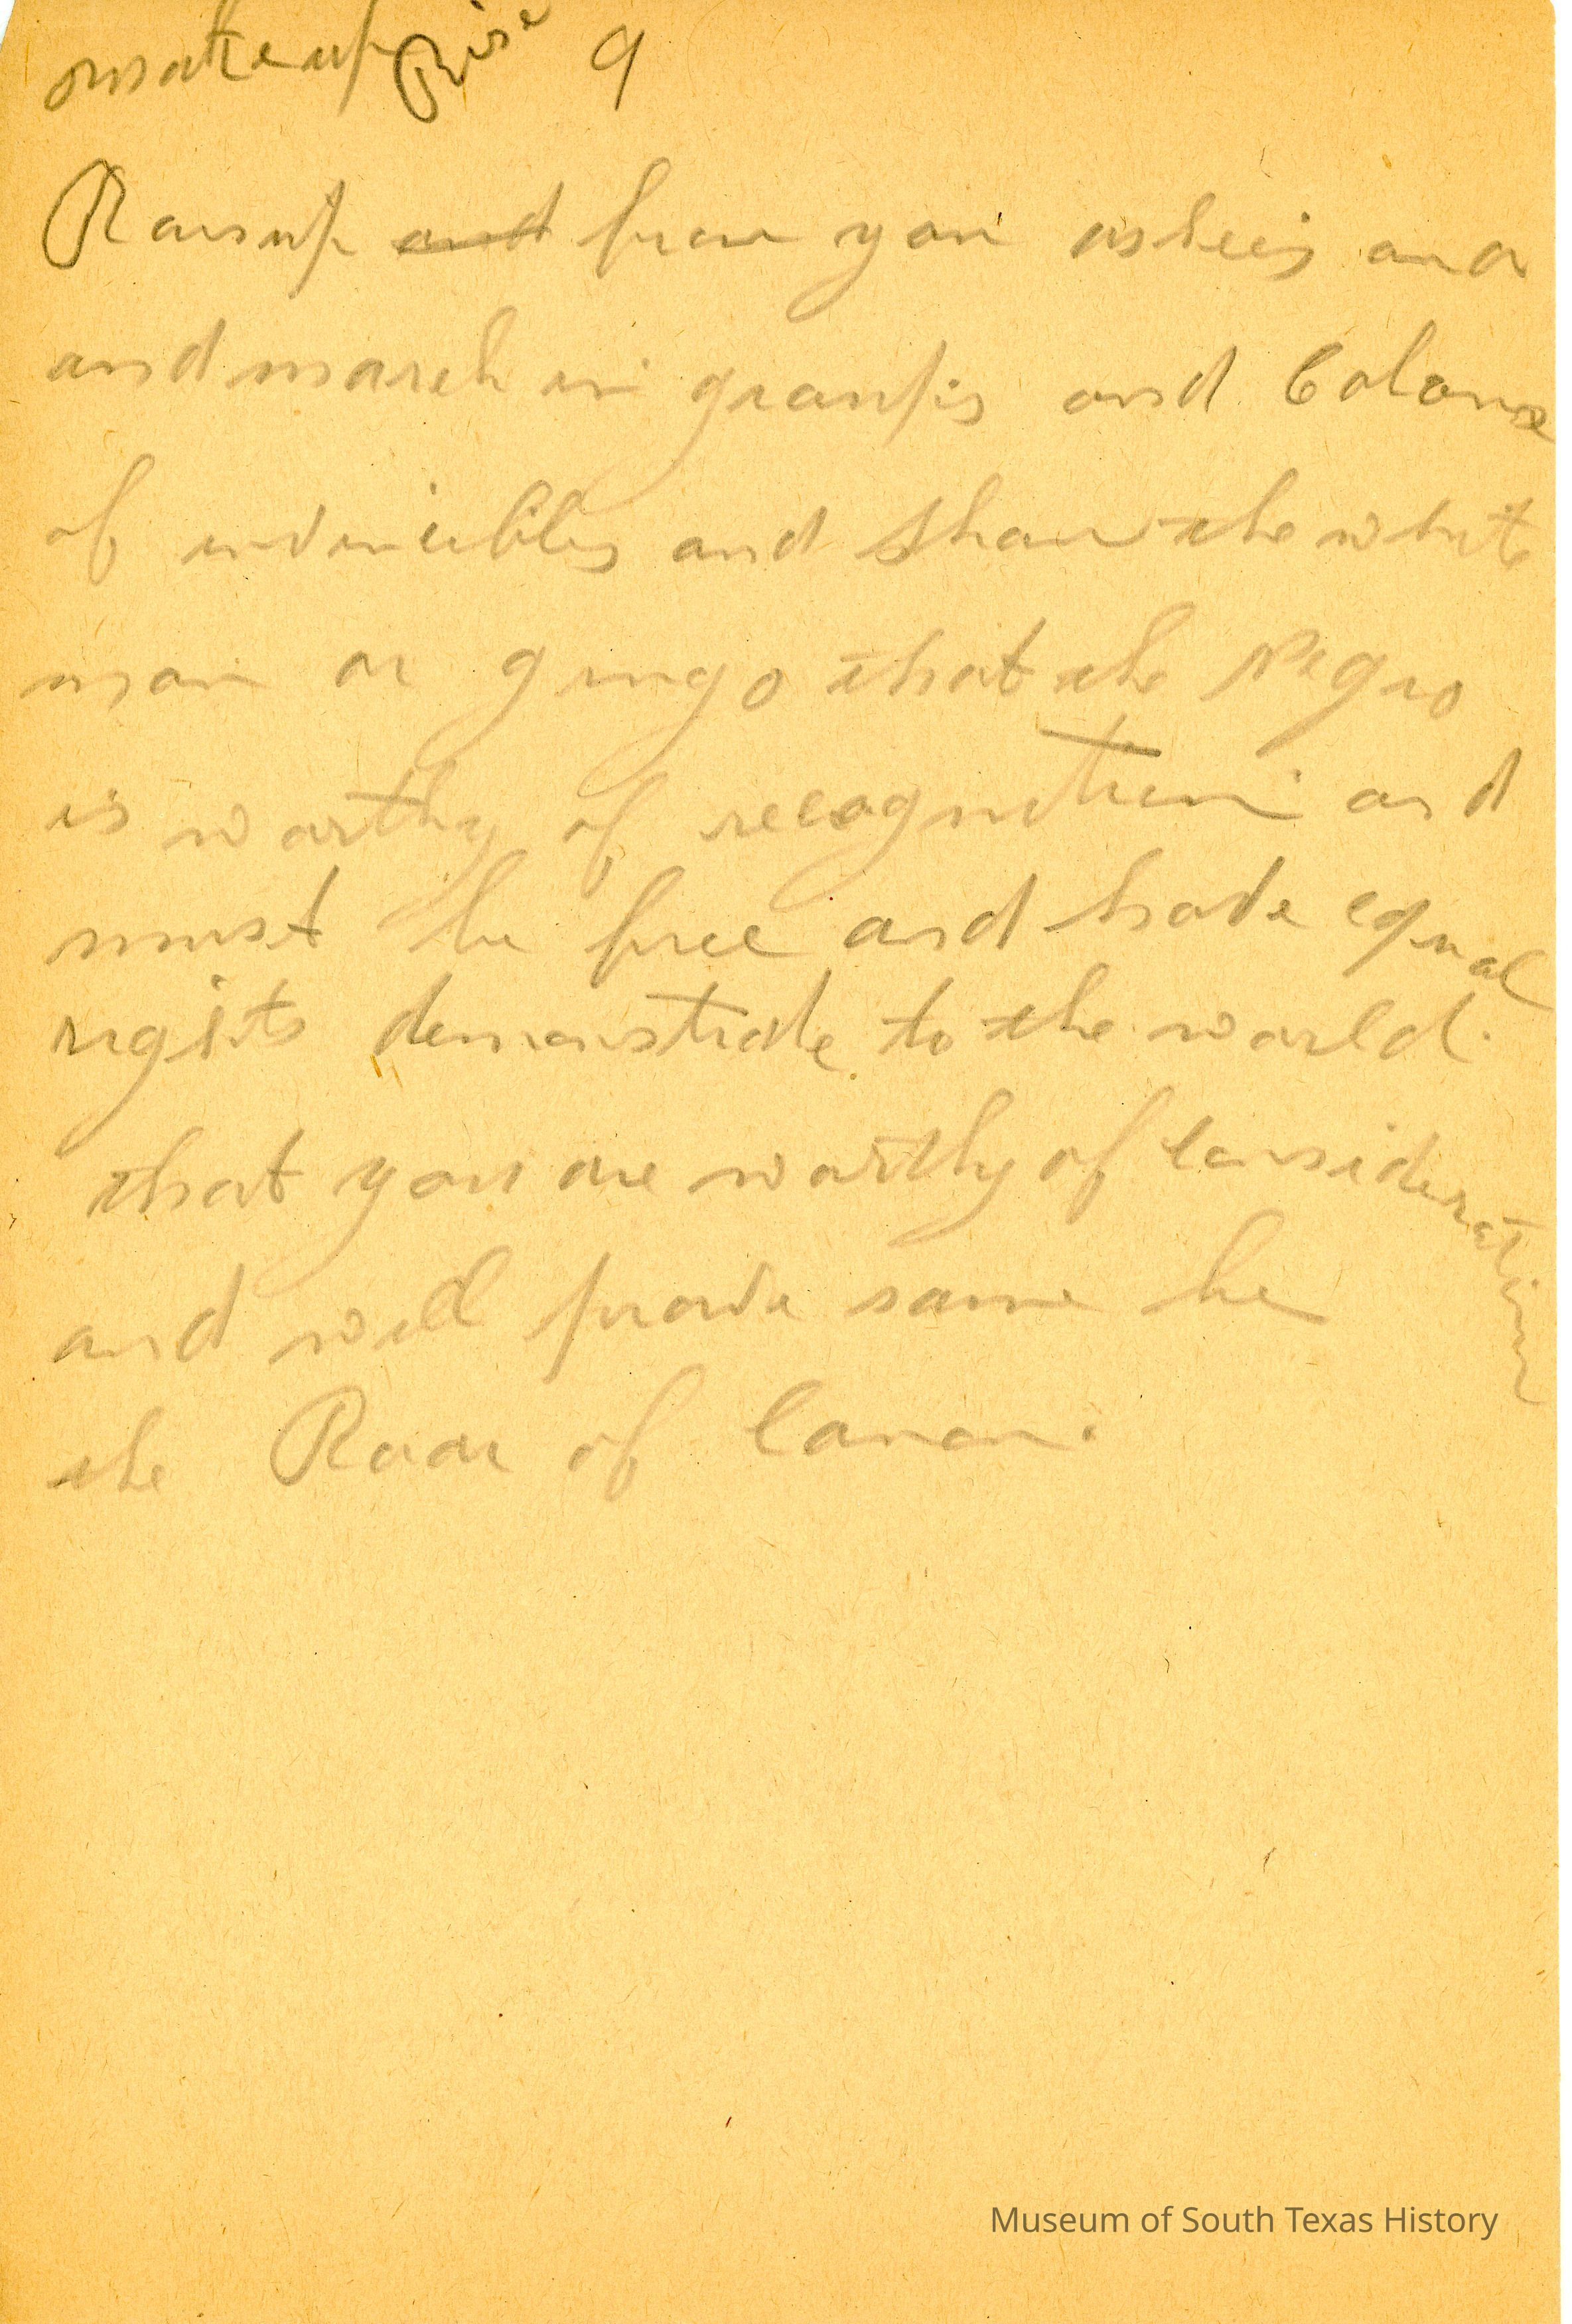 Rise 9
Raisup and from you ashes and
and march in groups and Colons
of invincibles and show the white
man or gringo that the Negro
is worthy of recognition and
must be free and have equal
rights demonstrate to the world.
that you are worthy of consideration
and will prove same be
the Roar of Canon.
Museum of South Texas History